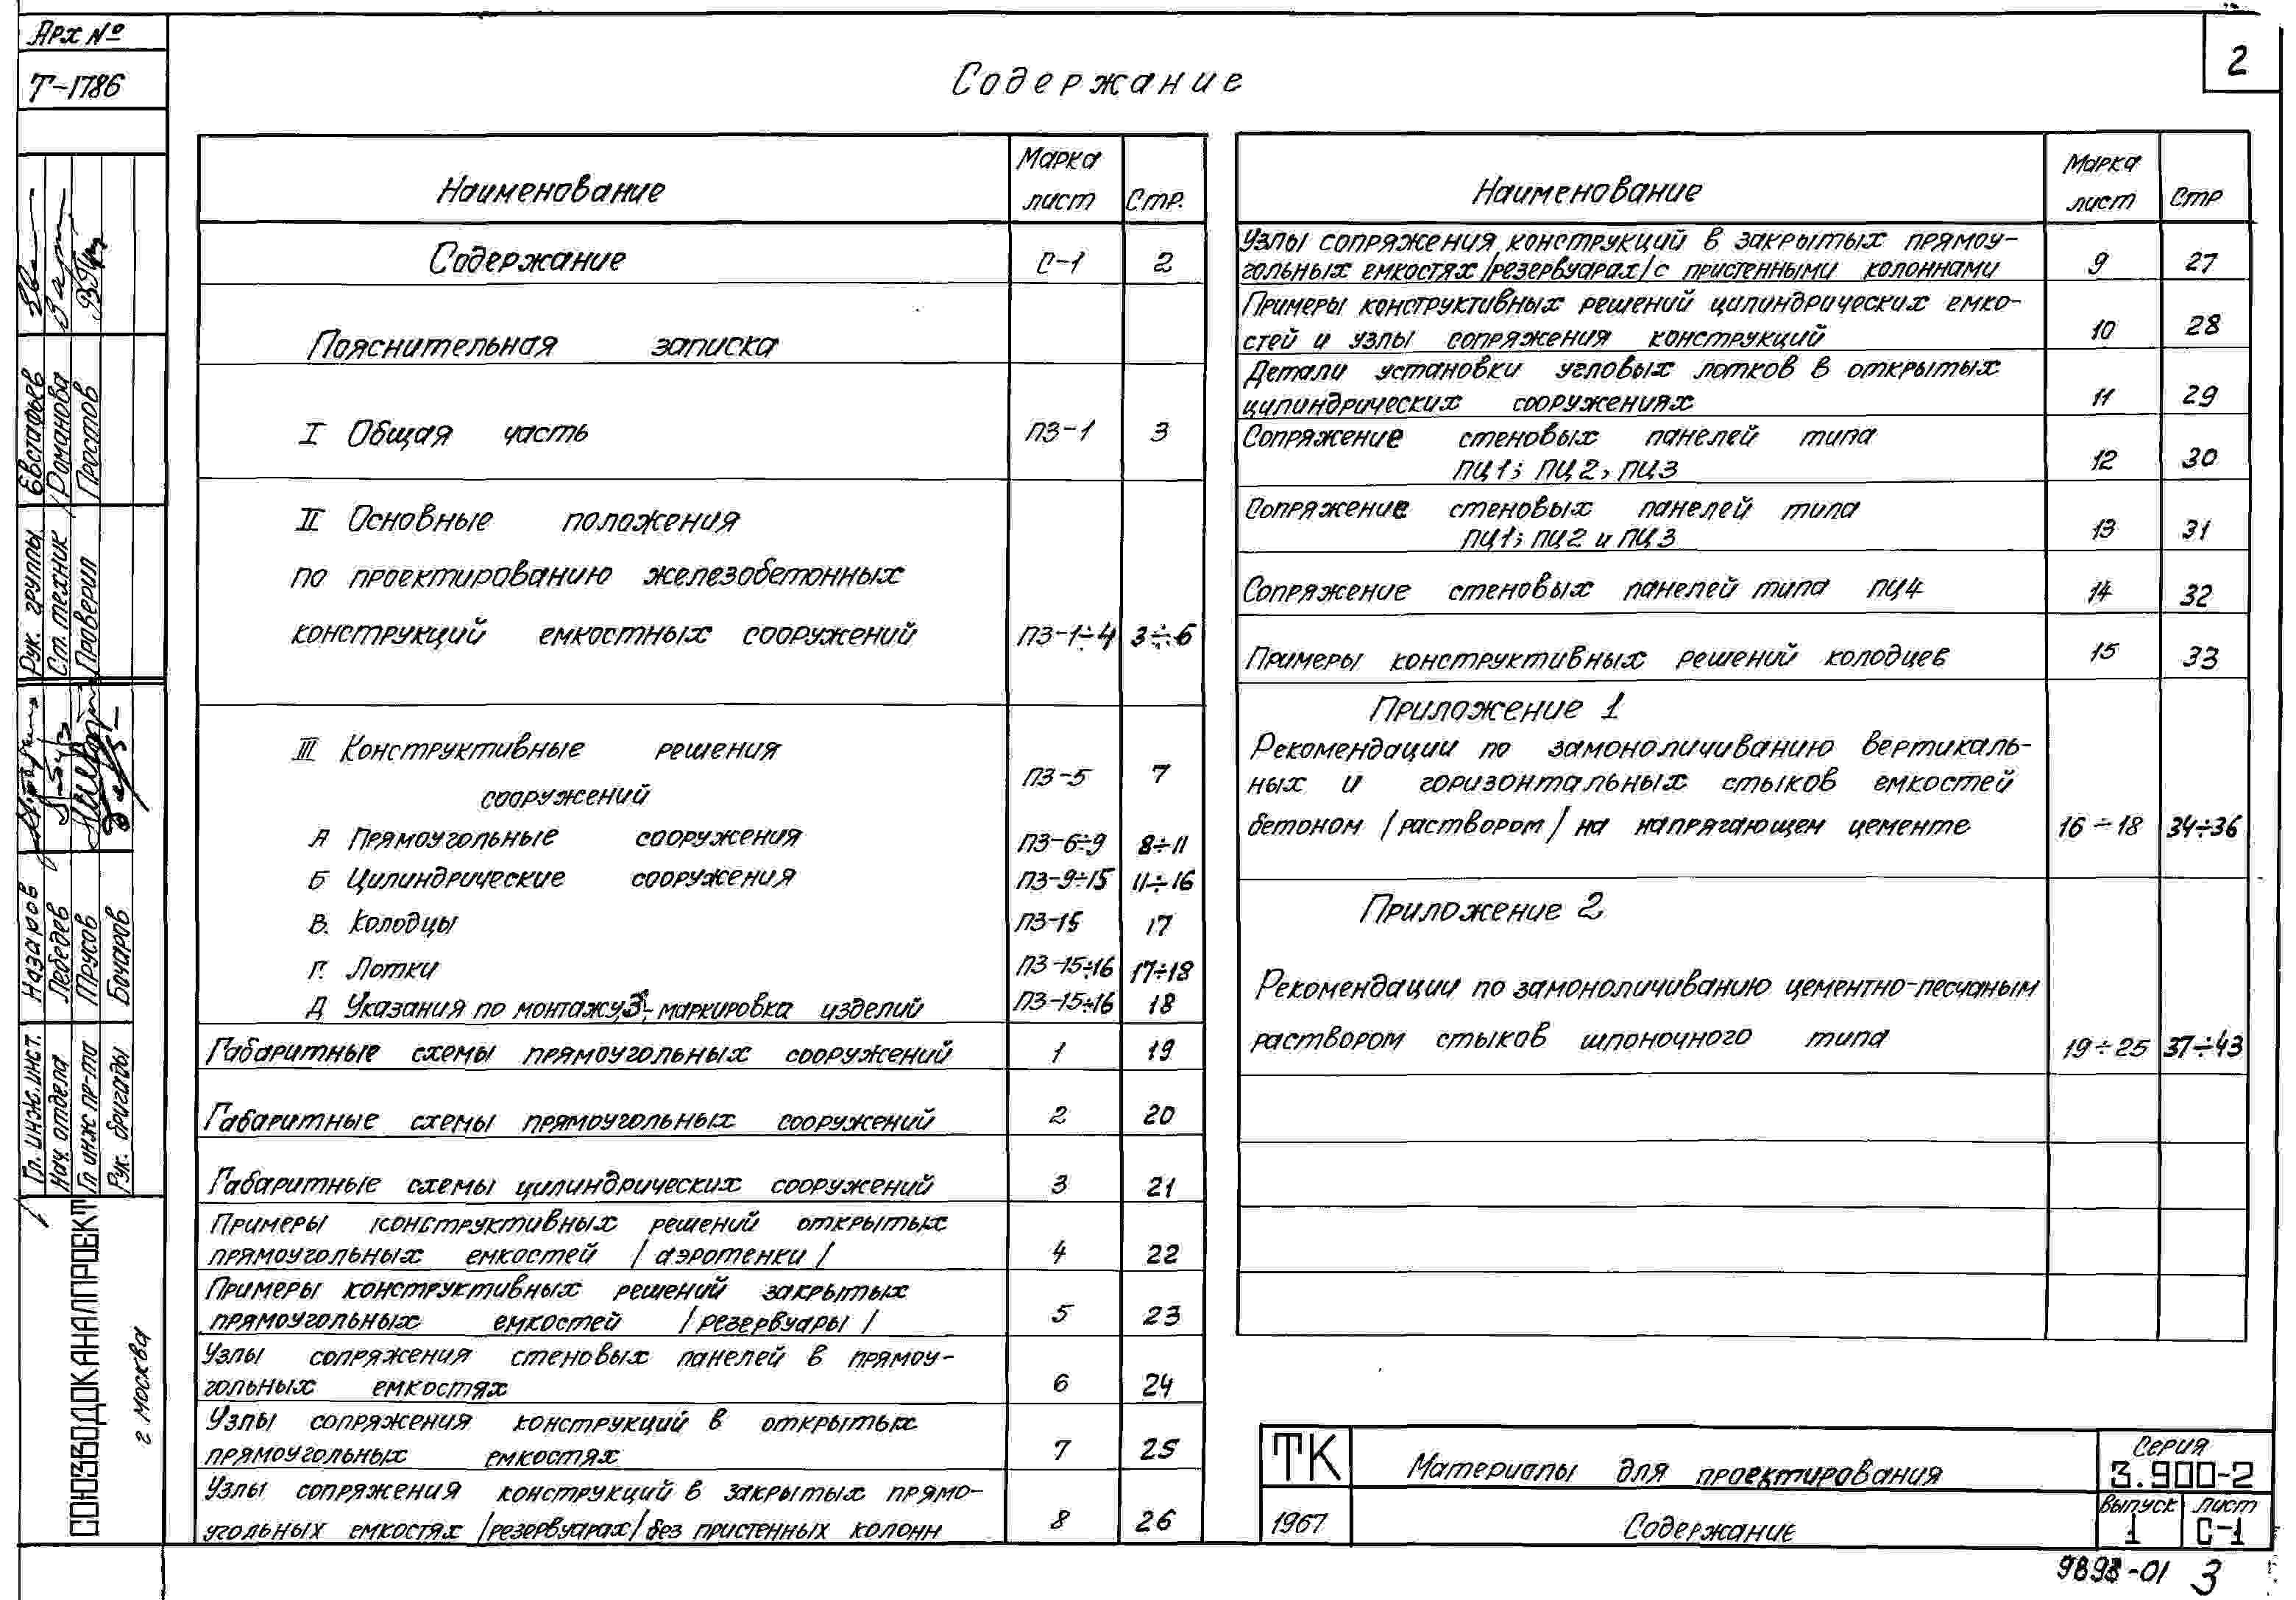 Арх №
Т-1786
2
Содержание
Наименование
Марка
лист
Стр.
Содержание С-1 2
Пояснительная записка
I Общая часть ПЗ-1 3
II Основные положения
по проектированию железобетонных
конструкций емкостных сооружений ПЗ-1÷4 3÷6
III Конструктивные решения
сооружений ПЗ-5 7
А Прямоугольные сооружения ПЗ-6÷9 8÷11
Б Цилиндрические сооружения ПЗ-9÷15 11÷16
В. Колодцы ПЗ-15 17
Г. Лотки ПЗ-15÷16 17÷18
Д Указания по монтажу, маркировка изделий ПЗ-15÷16 18
Габаритные схемы прямоугольных сооружений 1 19
Габаритные схемы прямоугольных сооружений 2 20
Габаритные схемы цилиндрических сооружений 3 21
Примеры конструктивных решений открытых
прямоугольных емкостей /аэротенки/ 4 22
Примеры конструктивных решений закрытых
прямоугольных емкостей /резервуары/ 5 23
Узлы сопряжения стеновых панелей в прямоу-
гольных емкостях 6 24
Узлы сопряжения конструкций в открытых
прямоугольных емкостях 7 25
Узлы сопряжения конструкций в закрытых прямо-
угольных емкостях /резервуарах/ без пристенных колонн 8 26
Наименование
Марка
лист
Стр
Узлы сопряжения конструкций в закрытых прямоу-
гольных емкостях /резервуарах/ с пристенными колоннами 9 27
Примеры конструктивных решений цилиндрических емко-
стей и узлы сопряжения конструкций 10 28
Детали установки угловых лотков в открытых
цилиндрических сооружениях 11 29
Сопряжение стеновых панелей типа
ПЦ1; ПЦ2, ПЦ3 12 30
Сопряжение стеновых панелей типа
ПЦ1; ПЦ2 и ПЦ3 13 31
Сопряжение стеновых панелей типа ПЦ4 14 32
Примеры конструктивных решений колодцев 15 33
Приложение 1
Рекомендации по замоноличиванию вертикаль-
ных и горизонтальных стыков емкостей
бетоном /раствором/ на напрягающем цементе 16÷18 34÷36
Приложение 2
Рекомендации по замоноличиванию цементно-песчаным
раствором стыков шпоночного типа 19÷25 37÷43
ТК
Материалы для проектирования
Серия
3.900-2
1967
Содержание
Выпуск
1
лист
С-1
9893-01 3
Рук. группы Евстафьев
Ст. техник Романова
Проверил Простов
Гл. инж. инст. Назаров
Нач. отдела Лебедев
Гл инж пр-та Трусов
Рук. бригады Бочаров
СОЮЗВОДОКАНАЛПРОЕКТ
г Москва